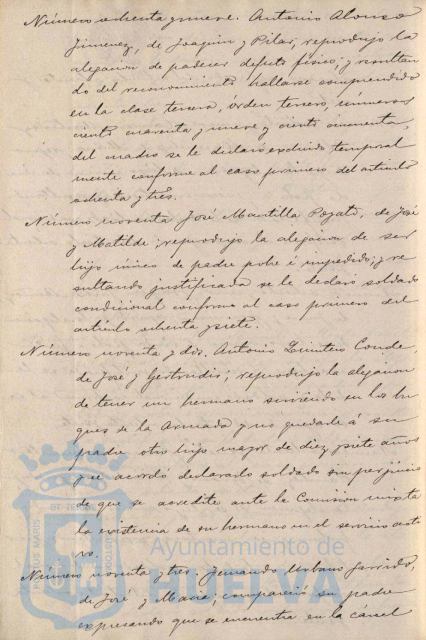 Número ochenta y nueve. Antonio Alonso
Jimenez, de Joaquin y Pilar, reprodujo la
alegacion de padecer defecto físico; y resultan
do del reconocimiento hallarse comprendido
en la clase tercera, orden tercero, números
ciento cuarenta y nueve y ciento cincuenta,
del cuadro se le declaró excluido temporal
mente conforme al caso primero del artículo
ochenta y tres.
Número noventa José Mantilla de José
y Matilde; reprodujo la alegacion de ser
hijo único de padre pobre é impedido; y re
sultando justificada se le declaró soldado
condicional conforme al caso primero del
artículo ochenta y siete.
Número noventa y dos. Antonio Quintero Conde,
de José y Gertrudis; reprodujo la alegacion
de tener un hermano sirviendo en los bu
ques de la Armada y no quedarle á su
padre otro hijo mayor de diez y siete años
y se acordó declararlo soldado sin perjuicio
de que se acredite ante la Comision mixta
la existencia de su hermano en el servicio acti
vo.
Número noventa y tres. Fernando Urbano Garrido,
de José y Maria; compareció su padre
expresando que se encuentra en la cárcel
Ayuntamiento de
HUELVA
PORTUS MARIS
ET TERRAE
CUSTODIA